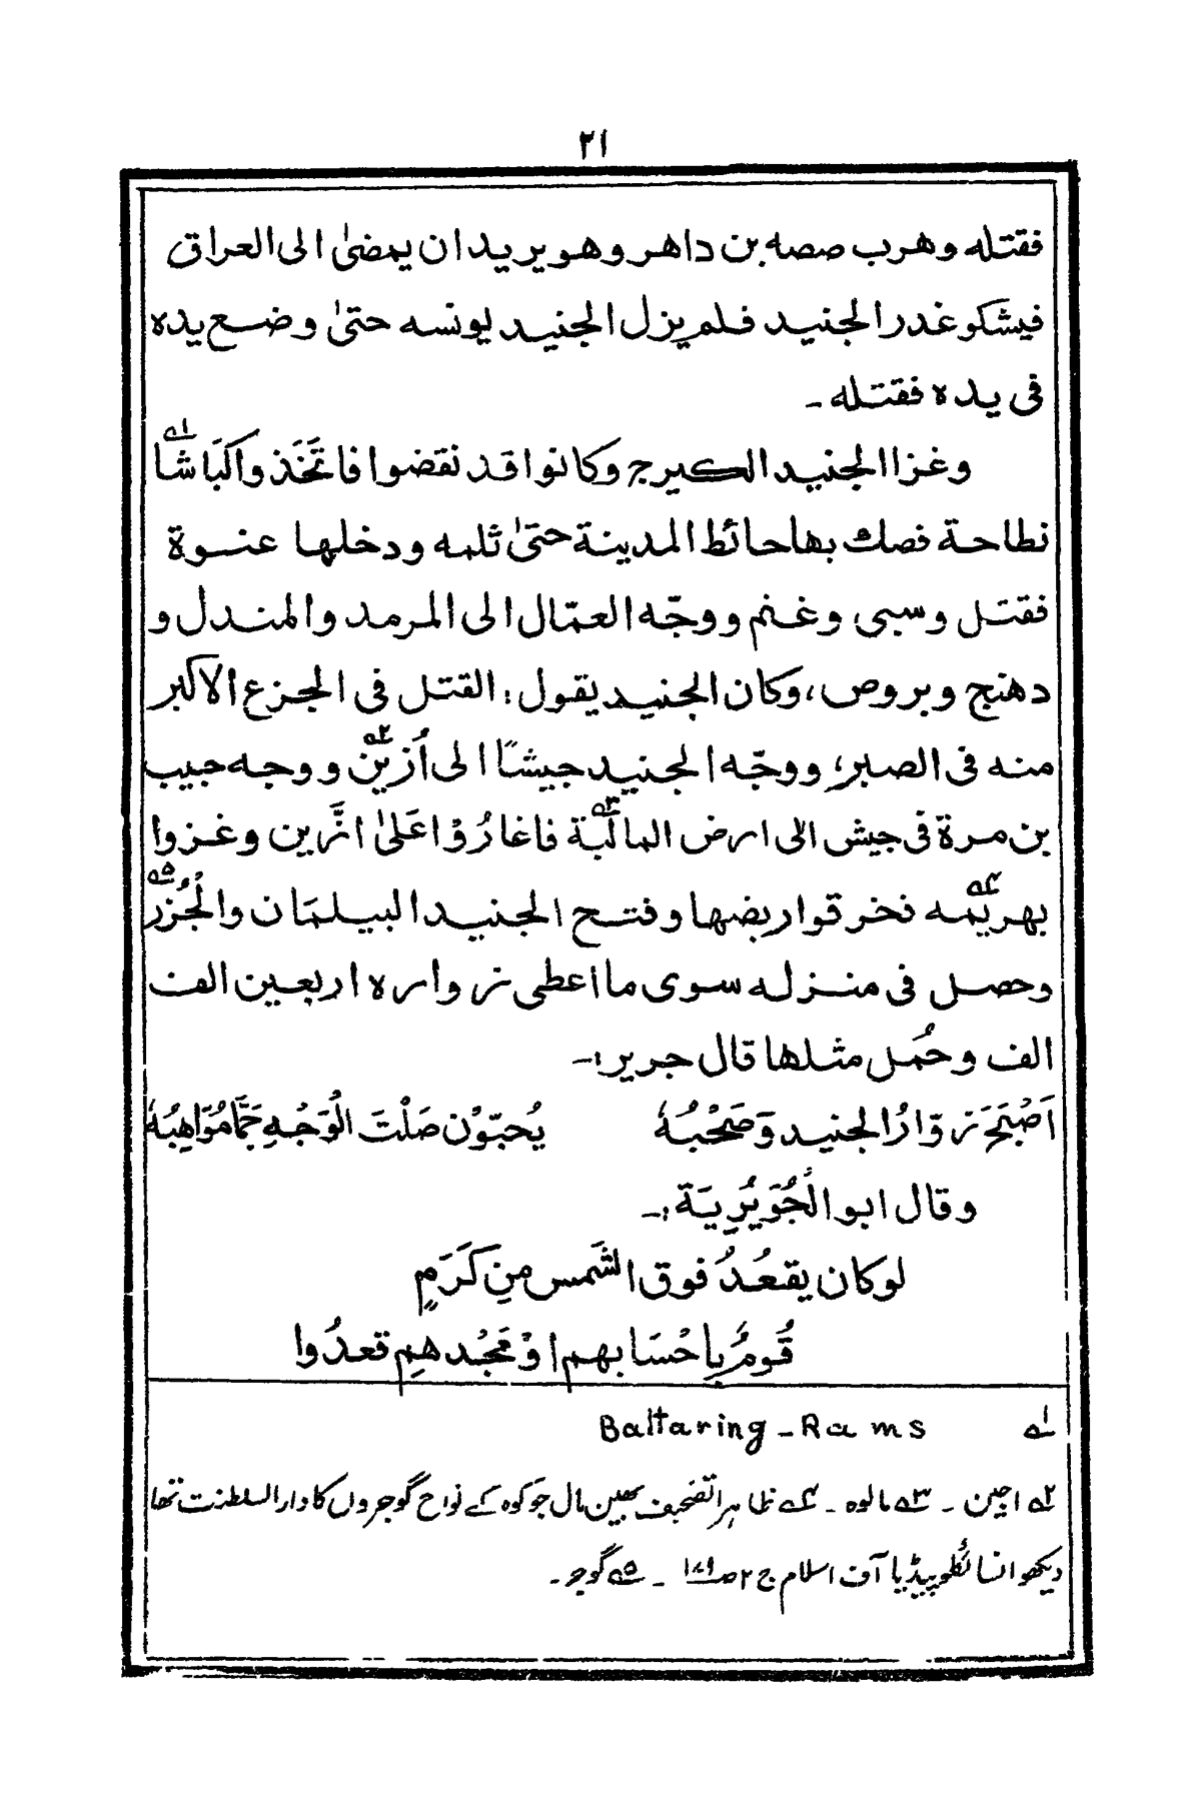 ٢١
فقتله وهرب صصه بن داهر وهو يريد ان يمضىٰ الى العراق
فيشكو غدر الجنيد فلم يزل الجنيد يونسه حتىٰ وضع يده
فى يده فقتله ـ
وغزا الجنيد الكيرج وكانوا قد نقضوا فاتَّخَذ واكَبَاشًا ؎۱
نطاحة فصك بها حائط المدينة حتىٰ ثلمه ودخلها عنوة
فقتل وسبى وغنم ووجّه العمّال الى المرمد والمندل و
دهنج وبروص، وكان الجنيد يقول: القتل فى الجزع الاكبر
منه فى الصبر، ووجّه الجنيد جيشًا الى اُزين ؎۲ ووجه حبيب
بن مرة فى جيش الى ارض المالَبة ؎۳ فاغارُوْا عَلىٰ ازَّين وغزوا
بهريمه ؎۴ فخر قوا ربضها وفتح الجنيد البيلمَان والْجُزْر ؎۵
وحصل فى منزله سوى ما اعطى زواره اربعين الف
الف وحُمل مثلها قال جرير:ـ
اَصْبَحَ زوّارُ الجنيد وَصَحْبُهٗ يُحبّوْن صَلْتَ الْوَجْهِ جَمًّا مُوَاهِبُهٗ
وقال ابو الْجُوَيْرِيَة:ـ
لو كان يقعُدُ فوق الشَمس مِن كَرَمٍ
قُومٌ بِاحْسَابهم اوْ مَجْدهِم قعدُوا
؎۱ Baltaring - Rams
؎۲ اجین ـ ؎۳ مالوہ ـ ؎۴ ظاہرا تصحیف بھین مال جو کوہ کے نواح گوجروں کا دار السلطنت تھا
دیکھو انسائکلوپیڈیا آف اسلام ج ۲ ص ـ ؎۵ گوجر ـ